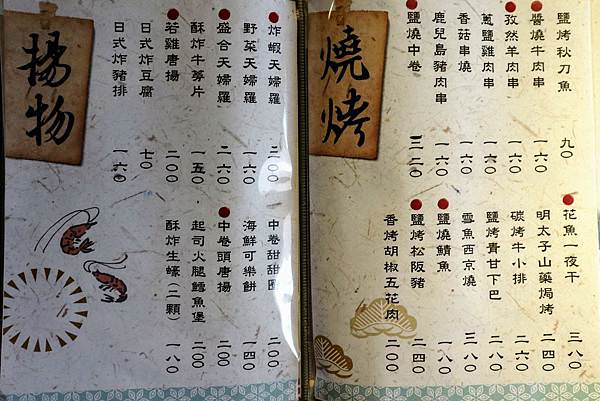 燒烤
鹽烤秋刀魚 九〇
醬燒牛肉串 一六〇
孜然羊肉串 一六〇
蔥鹽雞肉串 一六〇
香菇串燒 一六〇
鹿兒島豬肉串 一六〇
鹽燒中卷 三二〇
花魚一夜干 三八〇
明太子山藥焗烤 二四〇
碳烤牛小排 二六〇
鹽烤青甘下巴 二〇〇
雪魚西京燒 三八〇
鹽燒鯖魚 一八〇
鹽烤松阪豬 二四〇
香烤胡椒五花肉 二〇〇
揚物
炸蝦天婦羅 二〇〇
野菜天婦羅 一六〇
盛合天婦羅 二六〇
酥炸牛蒡片 一五〇
若雞唐揚 二〇〇
日式炸豆腐 七〇
日式炸豬排 一六〇
中卷甜甜圈 二〇〇
海鮮可樂餅 一四〇
中卷頭唐揚 二〇〇
起司火腿鱈魚堡 二〇〇
酥炸生蠔(二顆) 一八〇